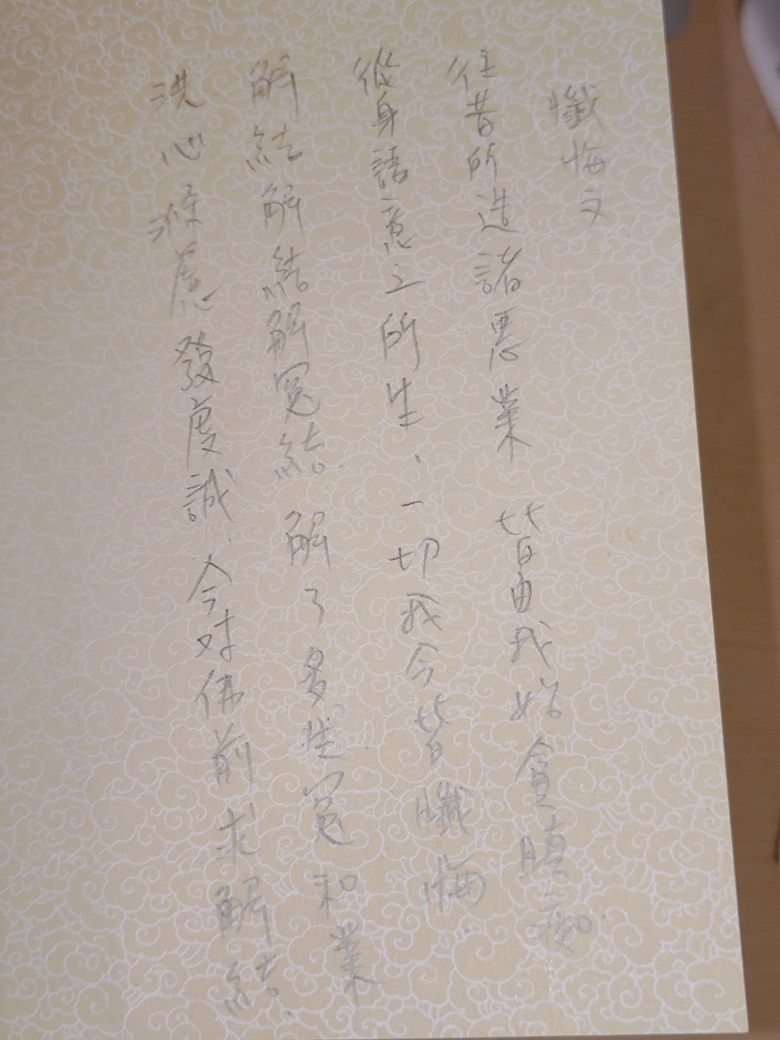 懺悔文
往昔所造諸惡業 皆由我始貪瞋痴.
從身語意之所生、一切我今皆懺悔.
解結解結解冤結. 解了多生冤和業
洗心滌慮發虔誠、今对佛前求解結.